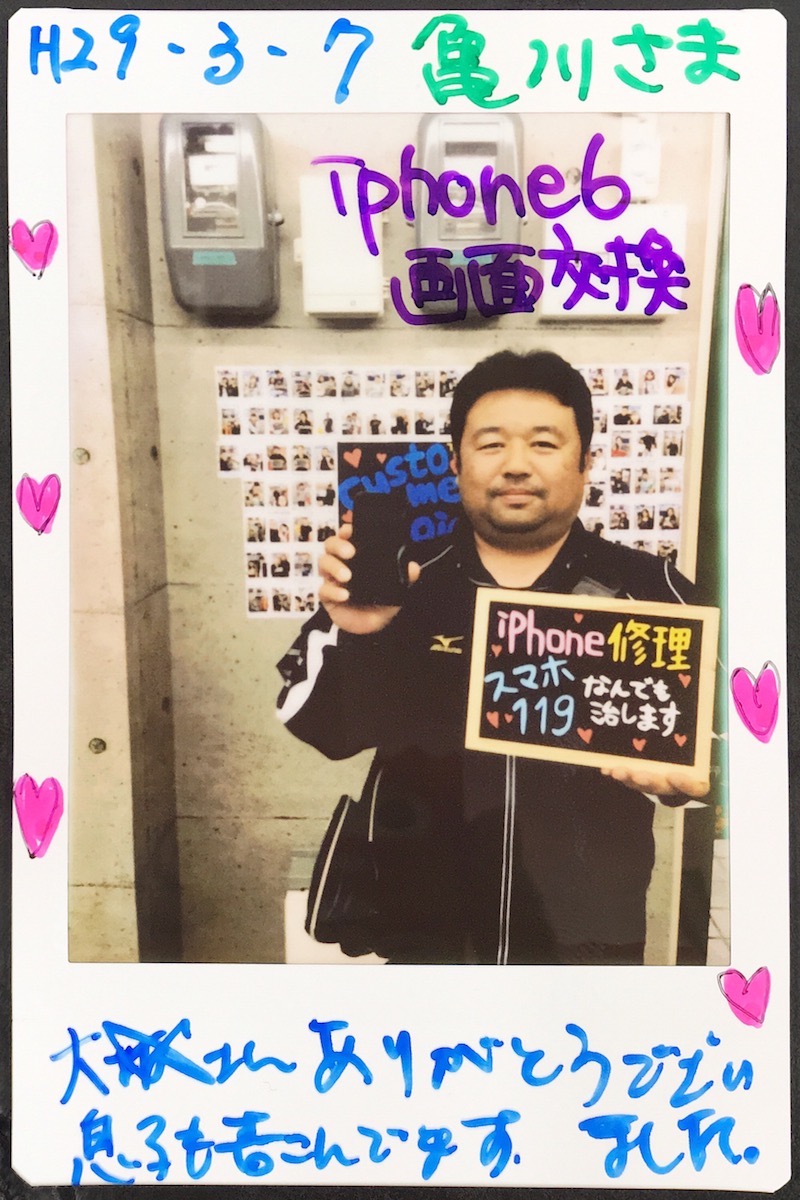 H29-3-7 亀川さま
iphone6
画面交換
custo
me
air
iPhone修理
スマホ
119
なんでも
治します
ありがとうござい
息子も喜こんでます。ました。